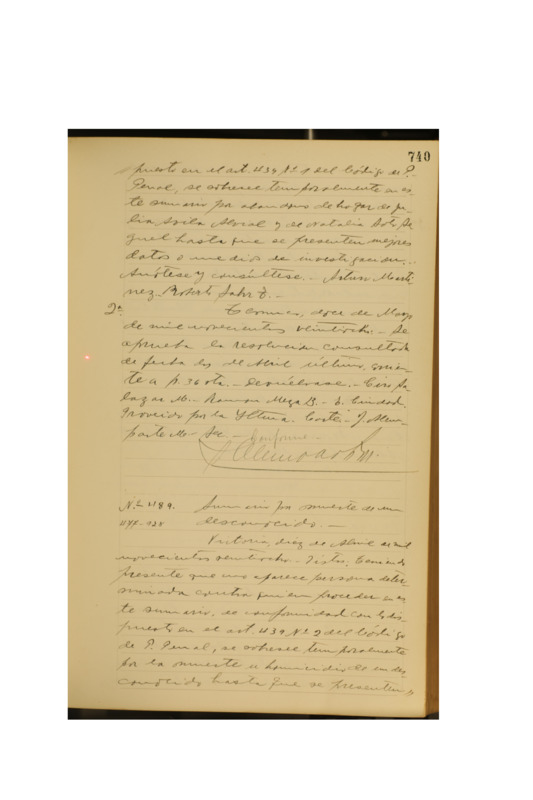 740
puesto en el art. 439 Nº 1 del Código de P.
Penal, se sobresee temporalmente en es-
te sumario por abandono de hogar de Ju-
lia Avila Moral y de Natalia Soto
quel hasta que se presenten mejores
datos o medios de investigacion.-
Anótese y consúltese.- Arturo Martí-
nez. Roberto Jahr
2ª. Temuco, doce de Mayo
de mil novecientos veintiocho.- Se
aprueba la resolucion consultada
de fecha de Abril último, corrien-
te a f. 36 vta.- Devuélvase.- Ciro Sa-
lazar M.- Ramon Meza B.- E. Ciudad.
Proveido por la Iltma. Corte.- J. Alem-
parte M- Sec.-
Conforme.-
Nº 1189. Sumario por muerte de un
desconocido.-
Victoria, diez de Abril de mil
novecientos veintiocho.- Vistos: Teniendo
presente que no aparece persona deter-
minada contra quien proceder en es-
te sumario, de conformidad con lo dis-
puesto en el art. 439 Nº 2 del Código
de P. Penal, se sobresee temporalmente
por la muerte u homicidio de un des-
conocido hasta que se presenten